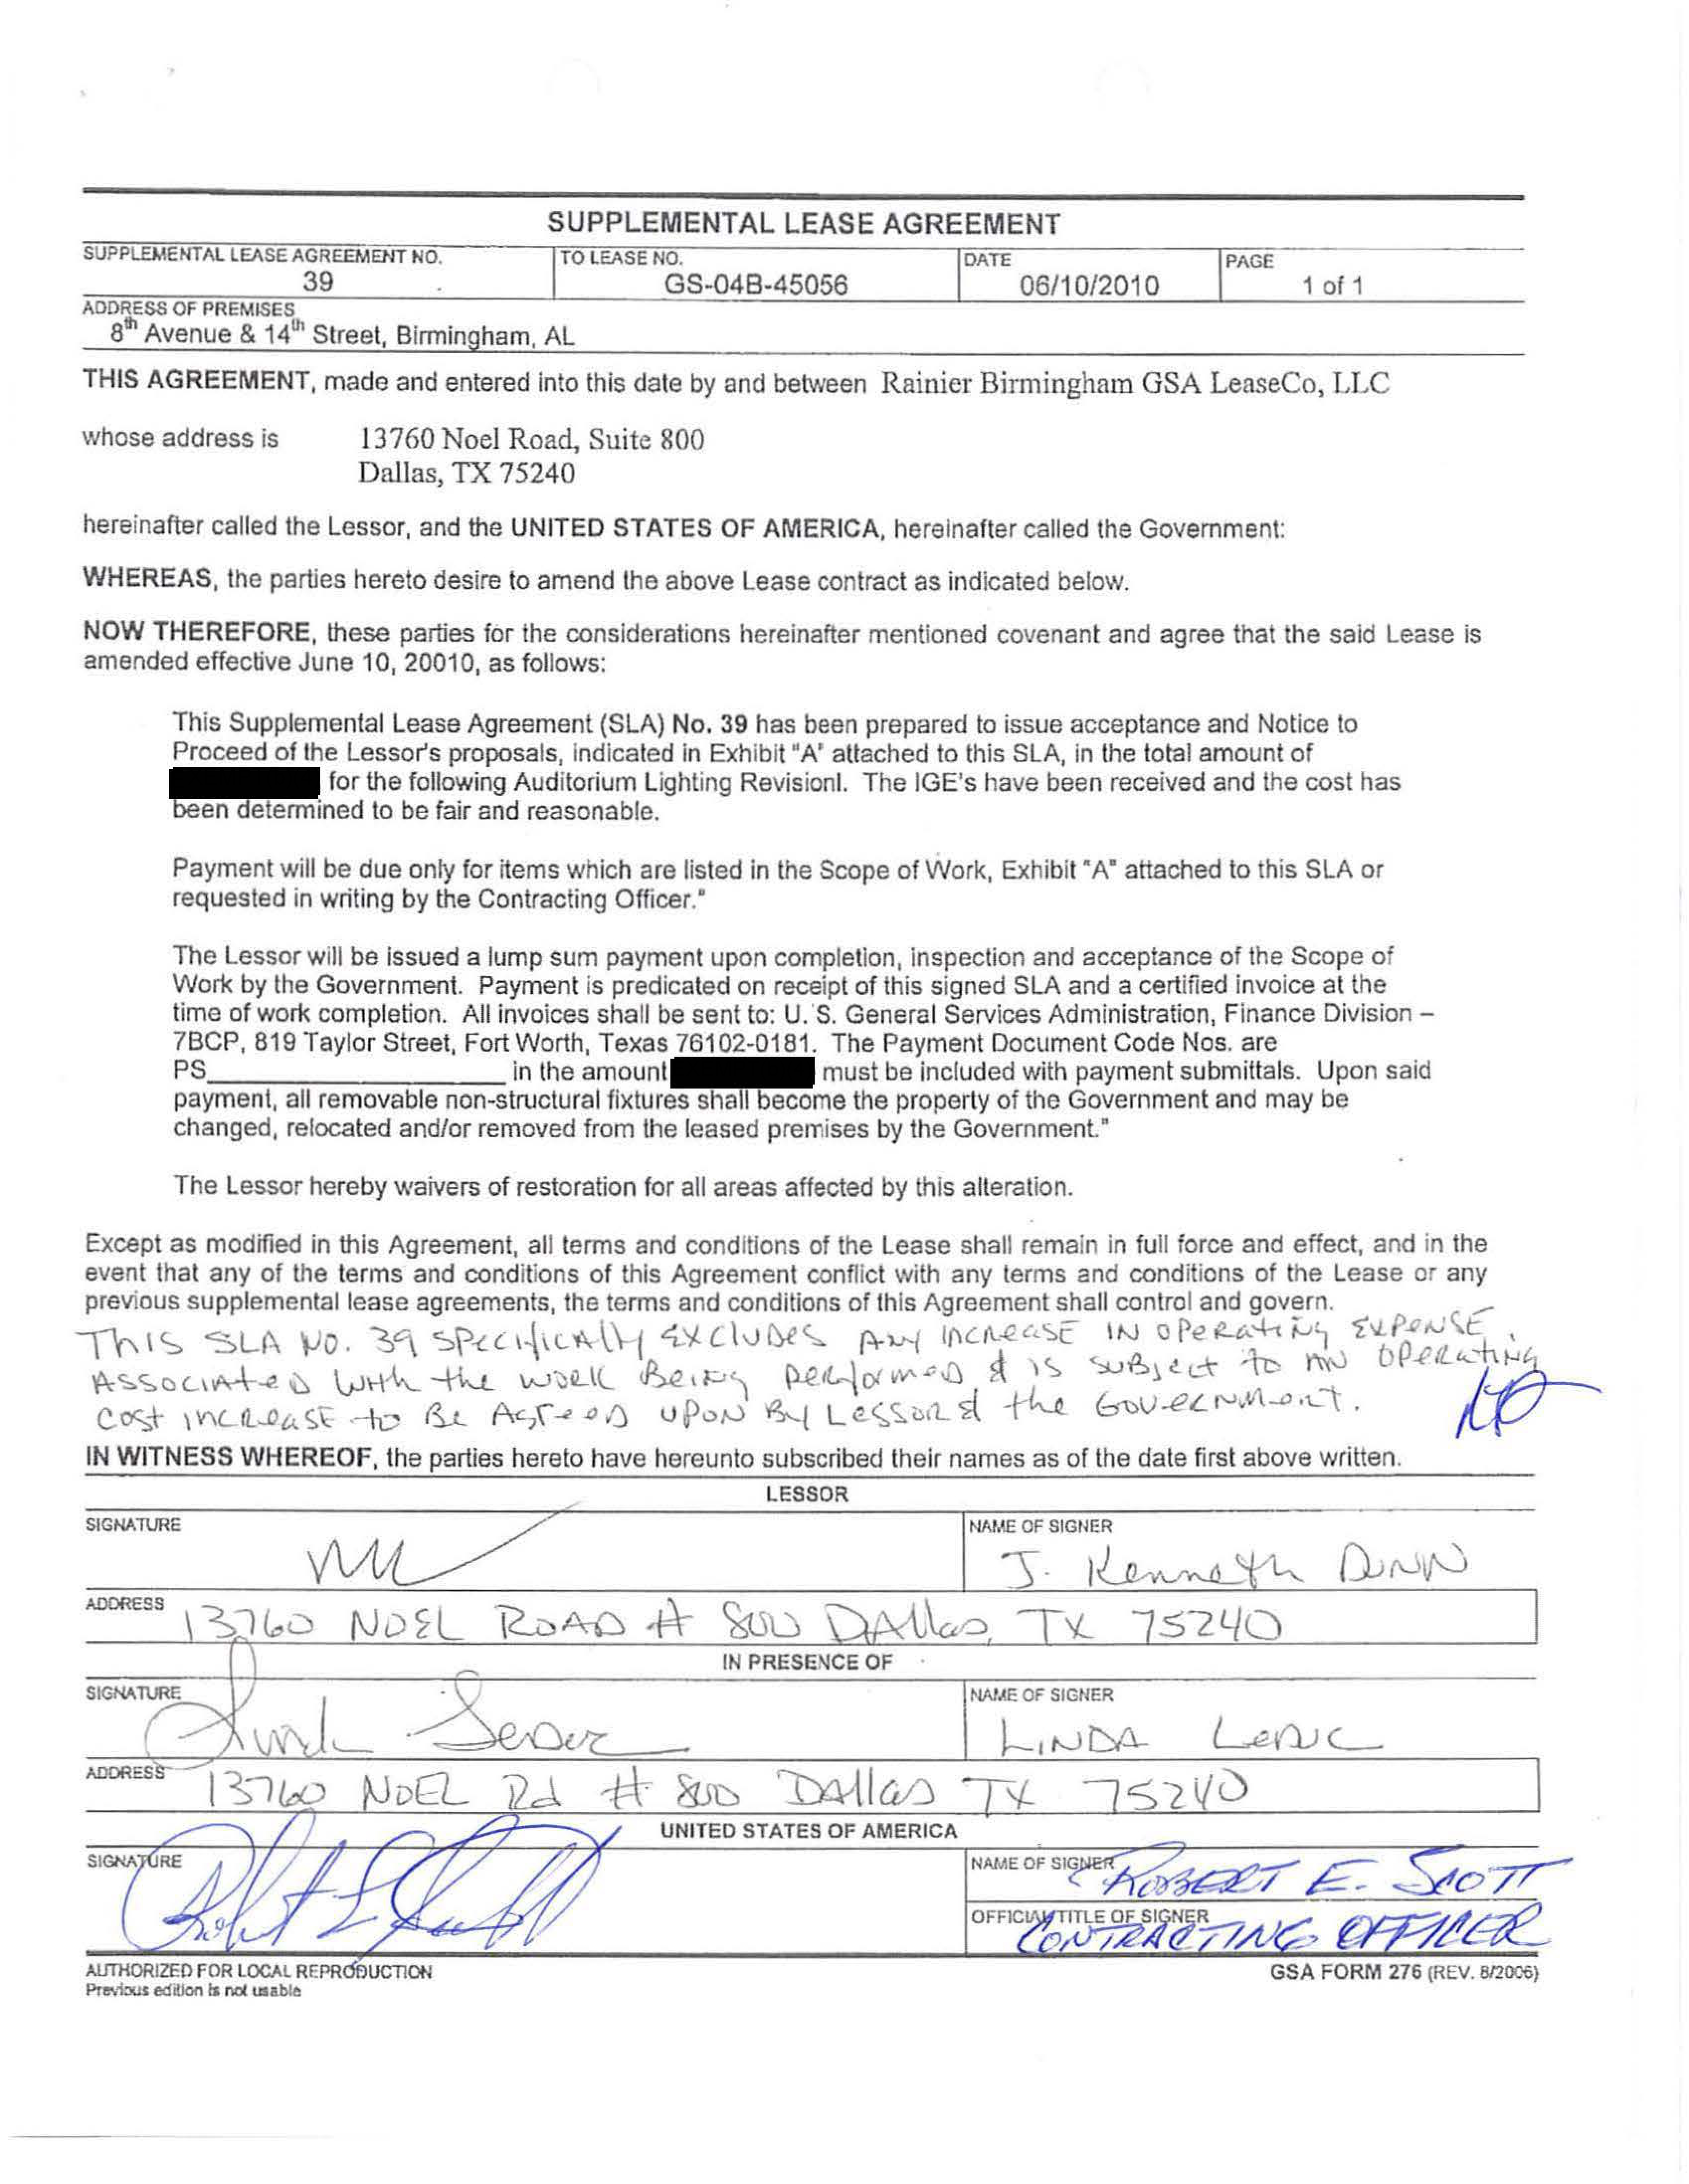 SUPPLEMENTAL LEASE AGREEMENT
SUPPLEMENTAL LEASE AGREEMENT NO.
39
TO LEASE NO.
GS-04B-45056
DATE
06/10/2010
PAGE
1 of 1
ADDRESS OF PREMISES
8th Avenue & 14th Street, Birmingham, AL
THIS AGREEMENT, made and entered into this date by and between Rainier Birmingham GSA LeaseCo, LLC
whose address is 13760 Noel Road, Suite 800
Dallas, TX 75240
hereinafter called the Lessor, and the UNITED STATES OF AMERICA, hereinafter called the Government:
WHEREAS, the parties hereto desire to amend the above Lease contract as indicated below.
NOW THEREFORE, these parties for the considerations hereinafter mentioned covenant and agree that the said Lease is
amended effective June 10, 20010, as follows:
This Supplemental Lease Agreement (SLA) No. 39 has been prepared to issue acceptance and Notice to
Proceed of the Lessor's proposals, indicated in Exhibit "A' attached to this SLA, in the total amount of
for the following Auditorium Lighting Revisionl. The IGE's have been received and the cost has
been determined to be fair and reasonable.
Payment will be due only for items which are listed in the Scope of Work, Exhibit "A" attached to this SLA or
requested in writing by the Contracting Officer."
The Lessor will be issued a lump sum payment upon completion, inspection and acceptance of the Scope of
Work by the Government. Payment is predicated on receipt of this signed SLA and a certified invoice at the
time of work completion. All invoices shall be sent to: U. S. General Services Administration, Finance Division –
7BCP, 819 Taylor Street, Fort Worth, Texas 76102-0181. The Payment Document Code Nos. are
PS____________________ in the amount must be included with payment submittals. Upon said
payment, all removable non-structural fixtures shall become the property of the Government and may be
changed, relocated and/or removed from the leased premises by the Government."
The Lessor hereby waivers of restoration for all areas affected by this alteration.
Except as modified in this Agreement, all terms and conditions of the Lease shall remain in full force and effect, and in the
event that any of the terms and conditions of this Agreement conflict with any terms and conditions of the Lease or any
previous supplemental lease agreements, the terms and conditions of this Agreement shall control and govern.
This SLA NO. 39 SPECIfICAlly EXCluDES ANY INCREASE IN OPERATING EXPENSE
ASSOCIATED WITH the WORK BEING PERformED & IS SUBJECT to AN OPERATING
COST INCREASE to BE AGREED UPON By LESSOR & the GOVERNMENT.
IN WITNESS WHEREOF, the parties hereto have hereunto subscribed their names as of the date first above written.
LESSOR
SIGNATURE
NAME OF SIGNER
J. Kenneth DUNN
ADDRESS 13760 NOEL ROAD # 800 DAllas, TX 75240
IN PRESENCE OF
SIGNATURE Linda Leduc
NAME OF SIGNER
LINDA LeDUC
ADDRESS 13760 NOEL Rd # 800 DAllas TX 75240
UNITED STATES OF AMERICA
SIGNATURE Robert E Scott
NAME OF SIGNER ROBERT E. SCOTT
OFFICIAL TITLE OF SIGNER
CONTRACTING OFFICER
AUTHORIZED FOR LOCAL REPRODUCTION
Previous edition is not usable
GSA FORM 276 (REV. 8/2006)